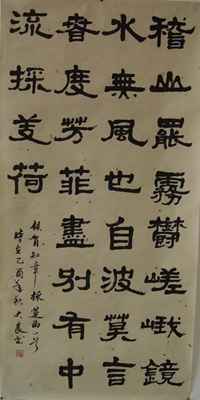 稽山罷霧欝嵯峨鏡
水無風也自波莫言
春度芳菲盡別有中
流採芰荷
錄賀知章採蓮曲一首
時在乙酉年秋大良書